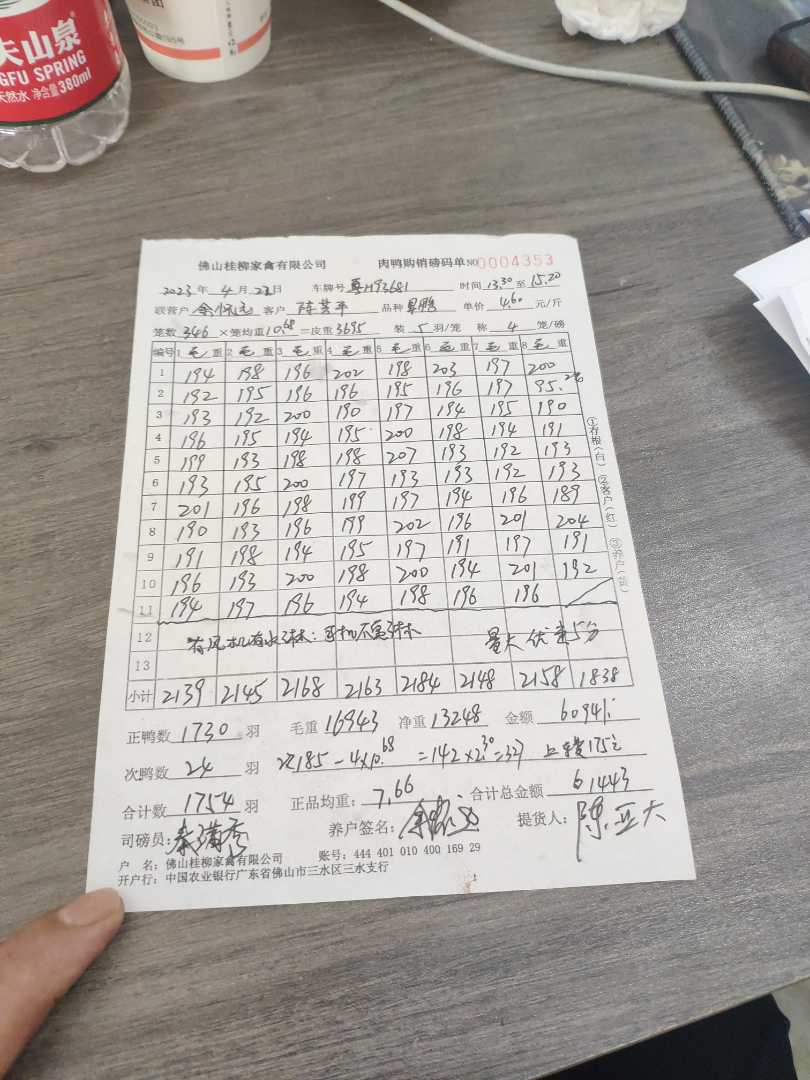 夫山泉
NGFU SPRING
天然水 净含量380ml
佛山桂柳家禽有限公司 肉鸭购销磅码单 NO 0004353
2023年4月22日 车牌号 粤H93681 时间 13.30 至 15.20
联营户 客户 品种 单价 4.60 元/斤
笼数 346 ×笼均重 10.68 =皮重 3695 装 5 羽/笼 称 4 笼/磅
编号 1 毛 重 2 毛 重 3 毛 重 4 毛 重 5 毛 重 6 毛 重 7 毛 重 8 毛 重
1 194 198 196 202 198 203 197 200
2 192 195 196 196 195 196 197 95.2
3 193 192 200 190 197 194 195 190
4 196 195 194 195 200 198 194 191
5 199 193 198 198 207 193 192 193
6 193 195 200 197 193 193 192 193
7 201 196 198 199 197 194 196 189
8 190 193 196 199 202 196 201 204
9 191 198 194 195 197 191 197 191
10 196 193 200 198 200 194 201 192
11 194 197 196 194 198 196 196
12
13
小计 2139 2145 2168 2163 2184 2148 2158 1838
正鸭数 1730 羽 毛重 16943 净重 13248 金额 60941
次鸭数 24 羽 185-4×10.68=142×2.30=327 175
合计数 1754 羽 正品均重: 7.66 合计总金额 61443
司磅员: 养户签名: 提货人: 陈亚大
户 名: 佛山桂柳家禽有限公司 账号: 444 401 010 400 169 29
开户行: 中国农业银行广东省佛山市三水区三水支行
①存根(白) ②客户(红) ③养户(黄)